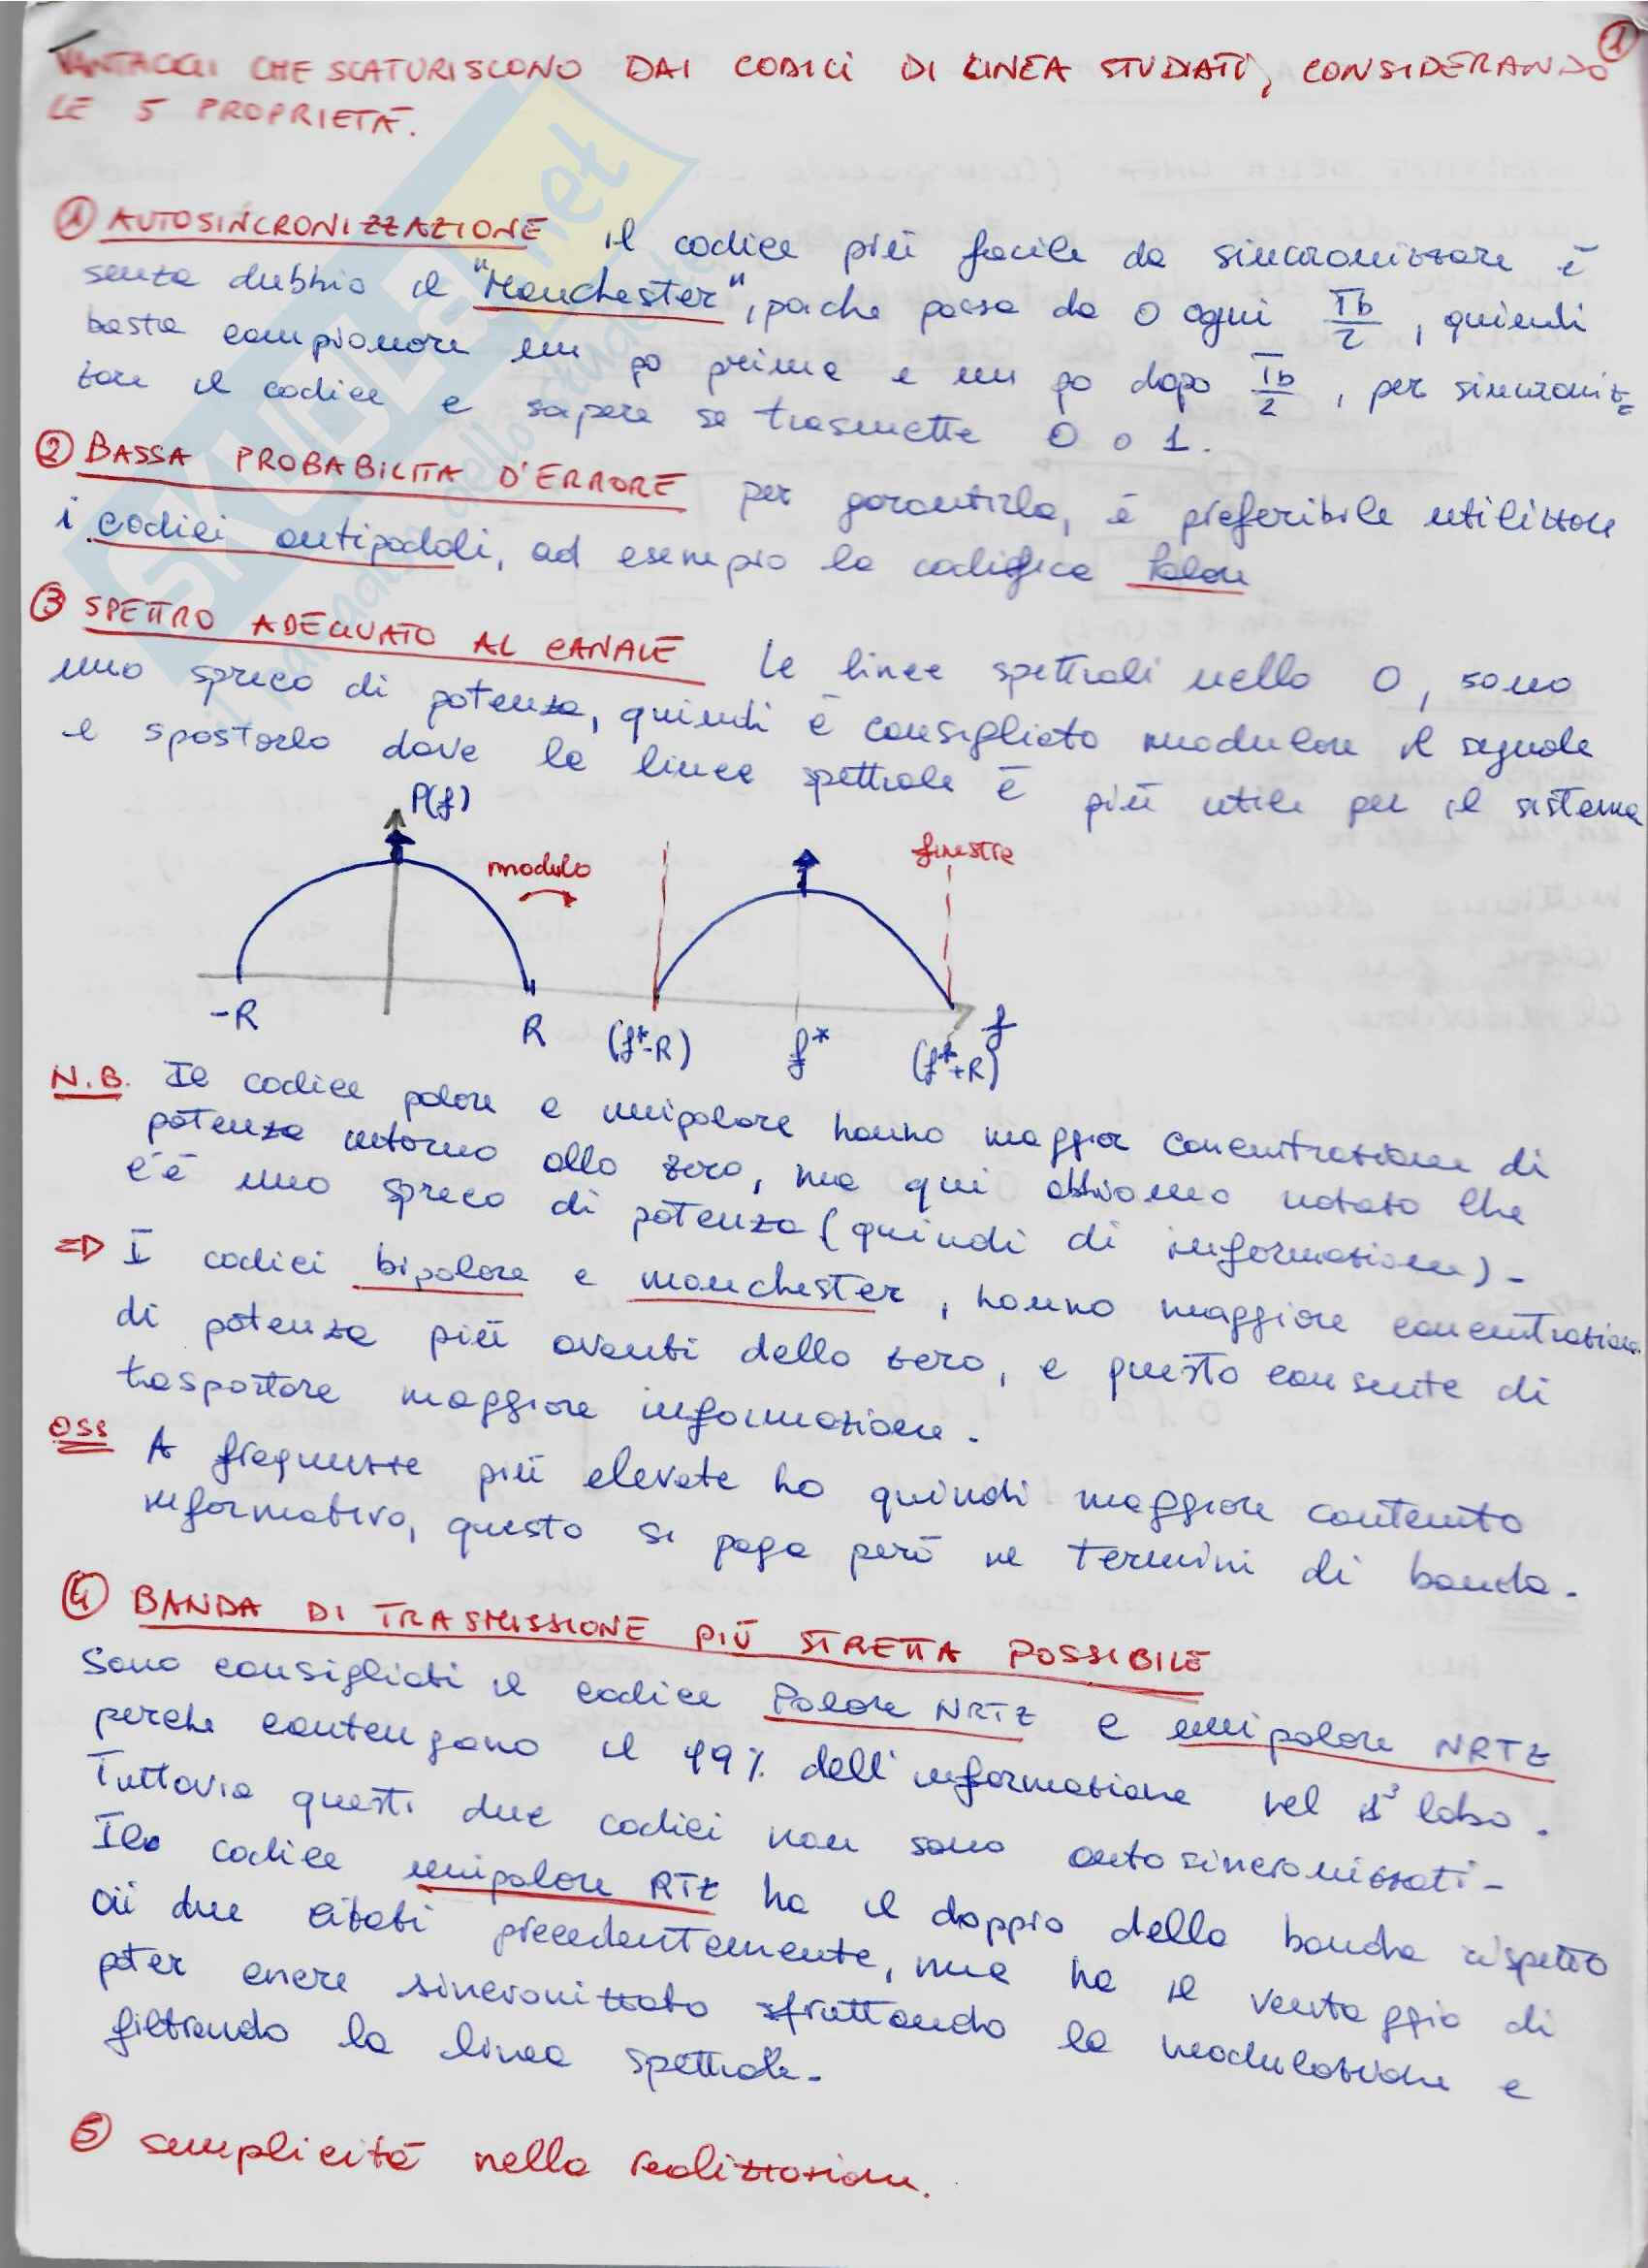 1
VANTAGGI CHE SCATURISCONO DAI CODICI DI LINEA STUDIATI, CONSIDERANDO
LE 5 PROPRIETÀ.
① AUTOSINCRONIZZAZIONE il codice più facile da sincronizzare è
senza dubbio il "Manchester", perche passa da 0 ogni Tb/2, quindi
basta campionare un po prima e un po dopo Tb/2, per sincroniz
zare il codice e sapere se trasmette 0 o 1.
② BASSA PROBABILITA D'ERRORE per garantirla, è preferibile utilizzare
i codici antipodali, ad esempio la codifica Polare
③ SPETTRO ADEGUATO AL CANALE Le linee spettrali nello 0, sono
uno spreco di potenza, quindi è consigliato modulare il segnale
e spostarlo dove la linea spettrale è più utile per il sistema
P(f)
modulo
finestra
-R R (f*-R) f* (f*+R) f
N.B. Il codice polare e unipolare hanno maggior concentrazione di
potenza intorno allo zero, ma qui abbiamo notato che
c'è uno spreco di potenza (quindi di informazione)-
=> I codici bipolare e manchester, hanno maggiore concentrazione
di potenza più avanti dello zero, e questo consente di
trasportare maggiore informazione.
OSS A frequenze più elevate ho quindi maggiore contenuto
informativo, questo si paga però in termini di banda-
④ BANDA DI TRASMISSIONE PIÙ STRETTA POSSIBILE
Sono consigliati il codice Polare NRTZ e unipolare NRTZ
perche contengono il 99% dell'informazione nel 1° lobo.
Tuttavia questi due codici non sono autosincronizzati-
Il codice unipolare RTZ ha il doppio della banda rispetto
ai due citati precedentemente, ma ha il vantaggio di
poter essere sincronizzato sfruttando la modulazione e
filtrando la linea spettrale-
⑤ semplicità nella realizzazione.
SKUOLA.net
il paradiso dello studente